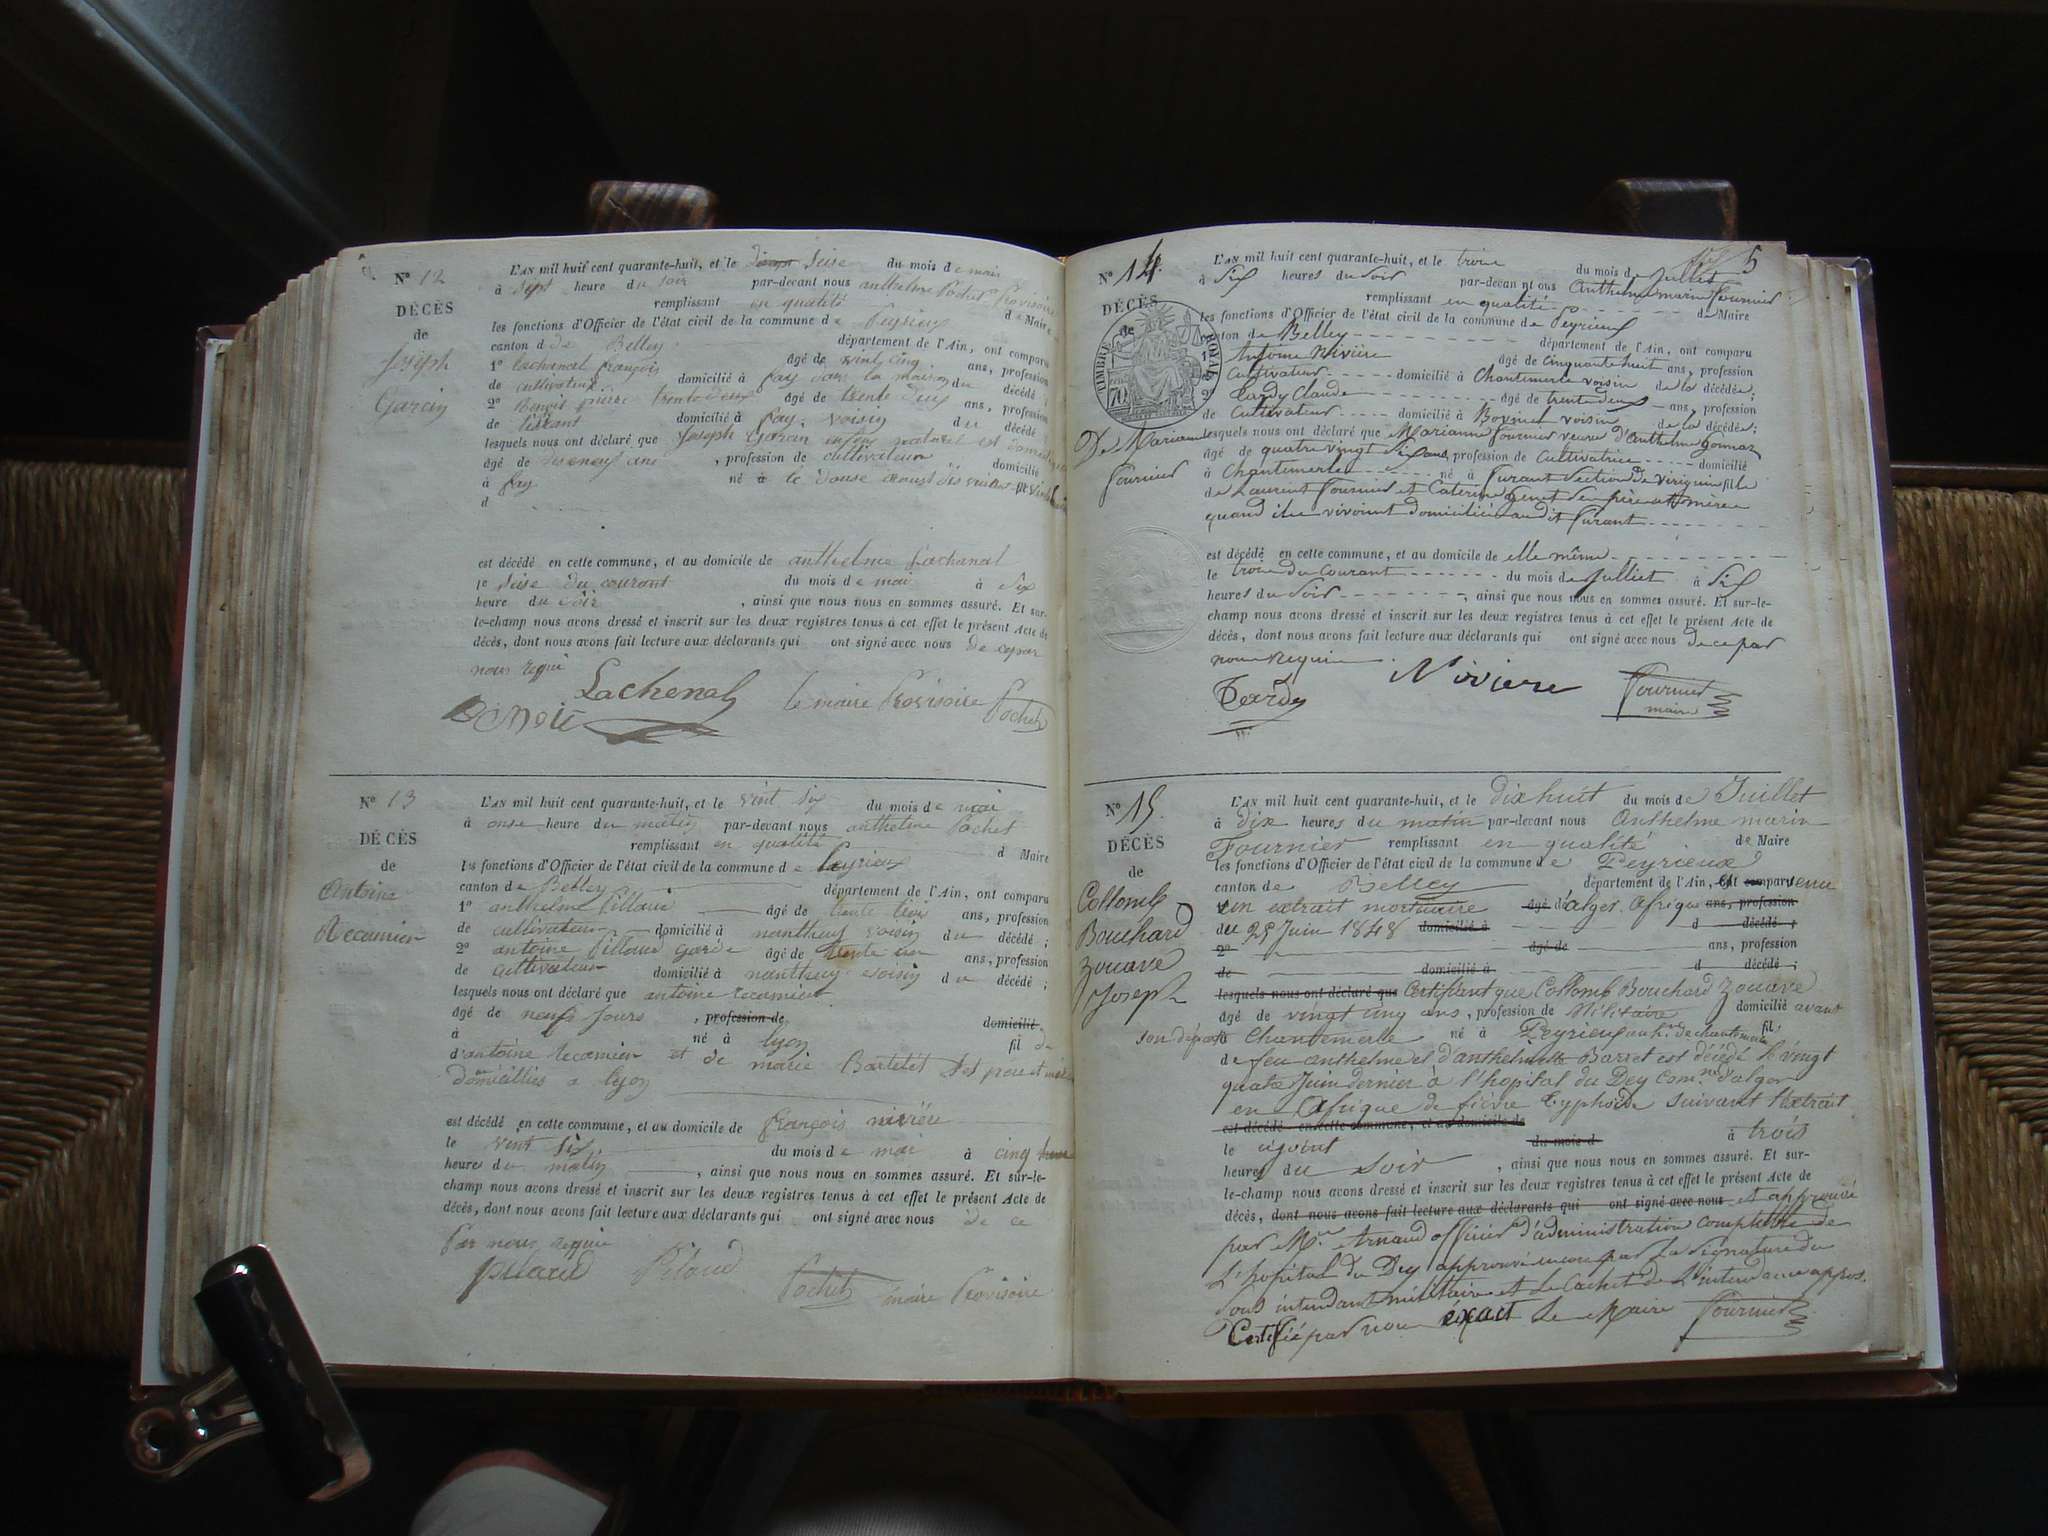 N° 12
DÉCÈS
de
Joseph
Garcin
L'AN mil huit cent quarante-huit, et le seise du mois de mai
à sept heure du soir par-devant nous anthelme Pochet Provisoire
remplissant en qualité de Maire
les fonctions d'Officier de l'état civil de la commune de Peyrieu
canton d de Belley département de l'Ain, ont comparu
1° lachenal françois âgé de vint cinq ans, profession
de cultivateur domicilié à fay dans la maison du décédé ;
2° Benoit pierre trente deux âgé de trente deux ans, profession
de tisserant domicilié à fay, voisin du décédé
lesquels nous ont déclaré que Joseph Garcin enfant naturel est
âgé de diseneuf ans , profession de cultivateur domicilié
à fay né à le
d
est décédé en cette commune, et au domicile de anthelme Lachanal
le seise du courant du mois de mai à six
heure du soir , ainsi que nous nous en sommes assuré. Et sur-
le-champ nous avons dressé et inscrit sur les deux registres tenus à cet effet le présent Acte de
décès, dont nous avons fait lecture aux déclarants qui ont signé avec nous de cepar
nous requi
Benoit Lachenal le maire Provisoire Pochet
N° 13
DÉCÈS
de
Antoine
Recamier
L'AN mil huit cent quarante-huit, et le vint six du mois de mai
à onse heure du matin par-devant nous anthelme Pochet
remplissant en qualité d Maire
les fonctions d'Officier de l'état civil de la commune de Peyrieux
canton de Belley département de l'Ain, ont comparu
1° anthelme Pillaud âgé de trente trois ans, profession
de cultivateur domicilié à nanthuy voisin du décédé ;
2° antoine Pilloud garde âgé de trente un ans, profession
de cultivateur domicilié à nanthuy voisin du décédé ;
lesquels nous ont déclaré que antoine recamier
âgé de neufs jours , profession de domicilié
à né à lyon fil de
d'antoine recamier et de marie Bartelet ses père et mère
domicilliés a lyon
est décédé en cette commune, et au domicile de françois nivière
le vint six du mois de mai à cinq
heures du matin , ainsi que nous nous en sommes assuré. Et sur-le-
champ nous avons dressé et inscrit sur les deux registres tenus à cet effet le présent Acte de
décès, dont nous avons fait lecture aux déclarants qui ont signé avec nous de ce
par nous requi
Pilloud Pochet maire Provisoire
5
N° 14.
DÉCÈS
de
TIMBRE ROYAL
70
De Marianne
fournier
L'AN mil huit cent quarante-huit, et le troise du mois de Juillet
à Six heures du Soir par-devant nous Anthelme marin Fournier
remplissant en qualité de Maire
les fonctions d'Officier de l'état civil de la commune de Peyrieux
canton de Belley département de l'Ain, ont comparu
1° Antoine Nivière âgé de cinquante huit ans, profession
Cultivateur domicilié à Chantemerle voisin de la décédée;
2° Tardy Claude âgé de trente deux ans, profession
de Cultivateur domicilié à Bovinel voisin de la décédée;
lesquels nous ont déclaré que Marianne Fournier veuve d'Anthelme
âgé de quatre vingt Six ans, profession de Cultivatrice domicilié
à Chantemerle né à Surant Section de Virignin fille
de Laurent Fournier et Caterine genet Ses père et mère
quand ils vivoient domiciliés audit Surant
est décédé en cette commune, et au domicile de elle même
le troise du Courant du mois de Julliet à Six
heures du Soir , ainsi que nous nous en sommes assuré. Et sur-le-
champ nous avons dressé et inscrit sur les deux registres tenus à cet effet le présent Acte de
décès, dont nous avons fait lecture aux déclarants qui ont signé avec nous de ce par
nous Requis
Tardy Niviere Fournier
maire
N° 15.
DÉCÈS
de
Collomb
Bouchard
Zouave
Joseph
L'AN mil huit cent quarante-huit, et le dix huit du mois de Juillet
à dix heures du matin par-devant nous Anthelme marin
Fournier remplissant en qualité de Maire
les fonctions d'Officier de l'état civil de la commune de Peyrieux
canton de Belley département de l'Ain, est comparu venu
un extrait mortuaire âgé d'alger Afrique ans, profession
du 25 Juin 1848 domicilié à d décédé ;
2° âgé de ans, profession
de domicilié à d décédé ;
lesquels nous ont déclaré que Certifiant que Collomb Bouchard Zouave
âgé de vingt cinq ans, profession de Militaire domicilié avant
son départ à Chantemerle né à Peyrieu de chantmerle fil;
de feu anthelme et d'anthelmette Barret est décédé le vingt
quatre Juin dernier à l'hopital du Dey Comne d'alger
en Afrique de fièvre typhoïde suivant l'extrait
est décédé en cette commune, et au domicile de
le du mois d à trois
heures du soir , ainsi que nous nous en sommes assuré. Et sur-
le-champ nous avons dressé et inscrit sur les deux registres tenus à cet effet le présent Acte de
décès, dont nous avons fait lecture aux déclarants qui ont signé avec nous et approuvé
par Mr Arnaud officier d'administration comptable de
L'hopital du Dey approuvé encore par la Signature du
Sous intendant militaire et le Cachet de L'intendance appos.
Certifié par nous éxact Le Maire Fournier